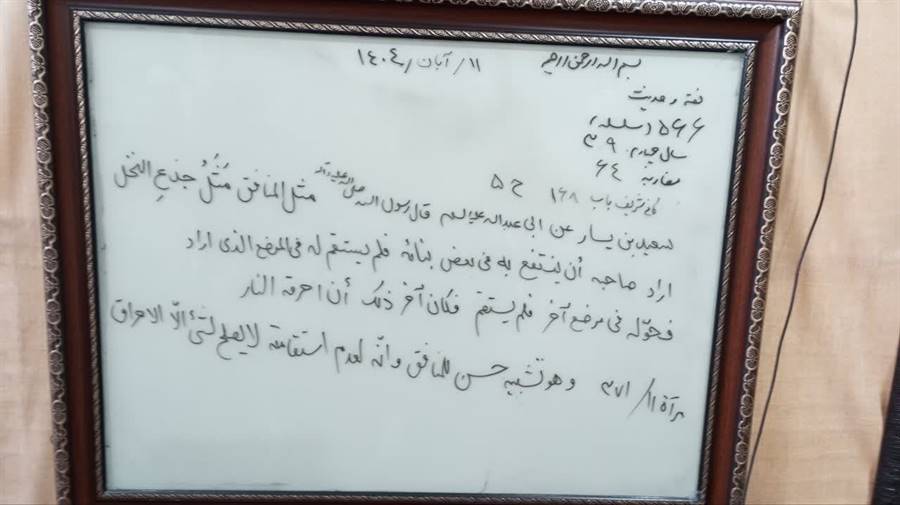 بسم الله الرحمن الرحیم ۱۱/ آبان/ ۱۴۰۴
فقه و حدیث
۵۶۶ (سلسله)
سال چهارم ۳۹
مضاربه ۶۴
کافی شریف باب ۱۶۸ ح ۵
سعید بن یسار عن ابی عبدالله علیه السلم قال رسول الله صلی الله علیه و آله مثل المنافق مَثَلُ جذعِ النخل
اراد صاحبه أن ینتفع به فی بعض بنائه فلم یستقم له فی الموضع الذی اراد
فحوّله فی موضع آخر فلم یستقم فکان آخر ذلک أن احرقه النار
مرآة ۱۱/ ۳۷۱ و هو تشبیه حسن للمنافق و انّه لعدم استقامته لا یصلح لشئ الّا الاحراق